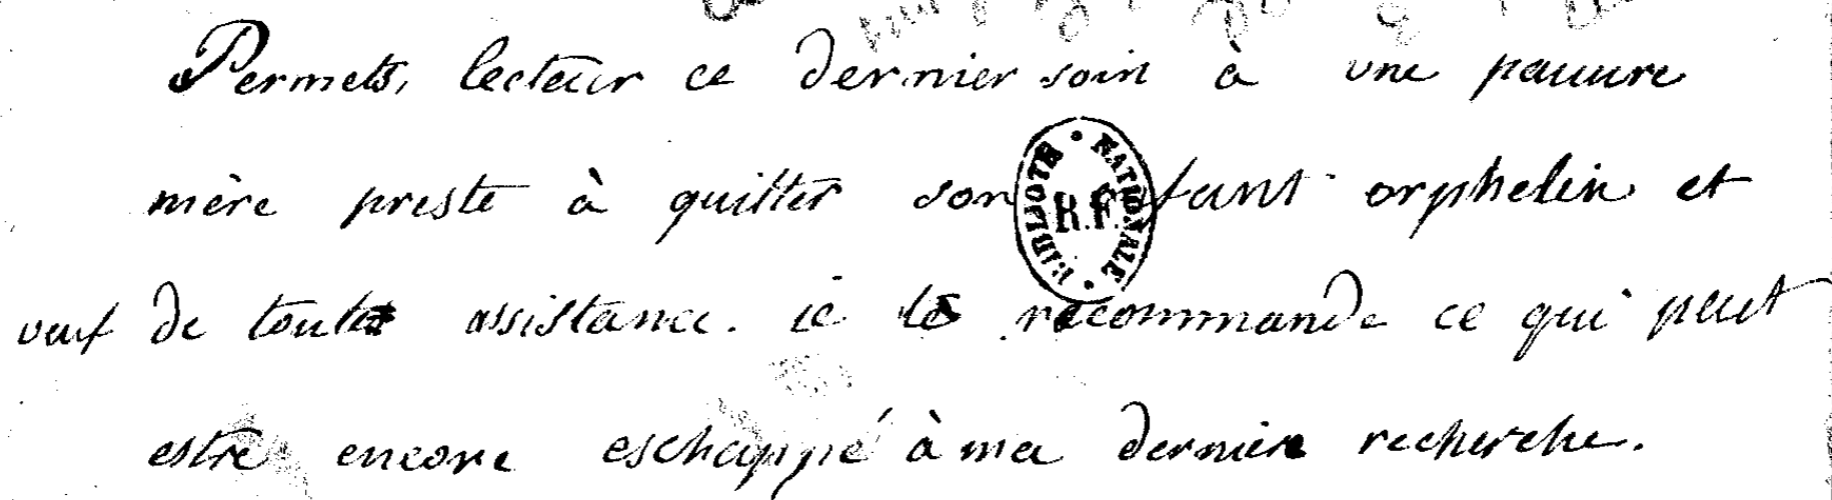 Permets, lecteur ce dernier soin à une pauure
mère preste à quitter son enfant orphelin et
veuf de toute assistance. ie te recommande ce qui peut
estre encore eschappé à ma derniere recherche.
BIBLIOTH NATIONALE
R.F.